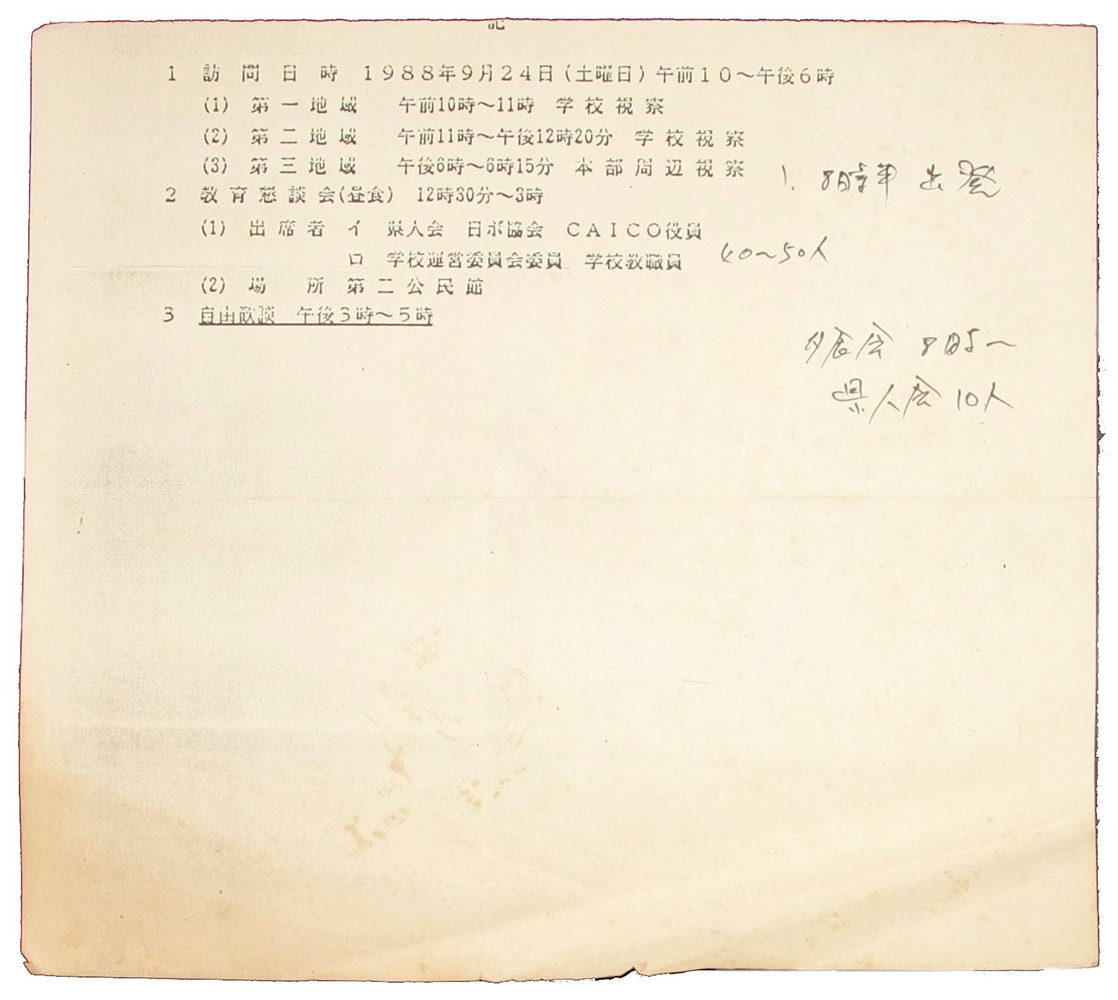 記
1 訪問日時 1988年9月24日(土曜日)午前10～午後6時
(1) 第一地域 午前10時～11時 学校視察
(2) 第二地域 午前11時～午後12時20分 学校視察
(3) 第三地域 午後6時～6時15分 本部周辺視察
1. 8時半 出発
2 教育懇談会(昼食) 12時30分～3時
(1) 出席者 イ 県人会 日ボ協会 CAICO役員
ロ 学校運営委員会委員 学校教職員 40～50人
(2) 場所 第二公民館
3 自由歓談 午後3時～5時
夕食会 8時～
県人会 10人